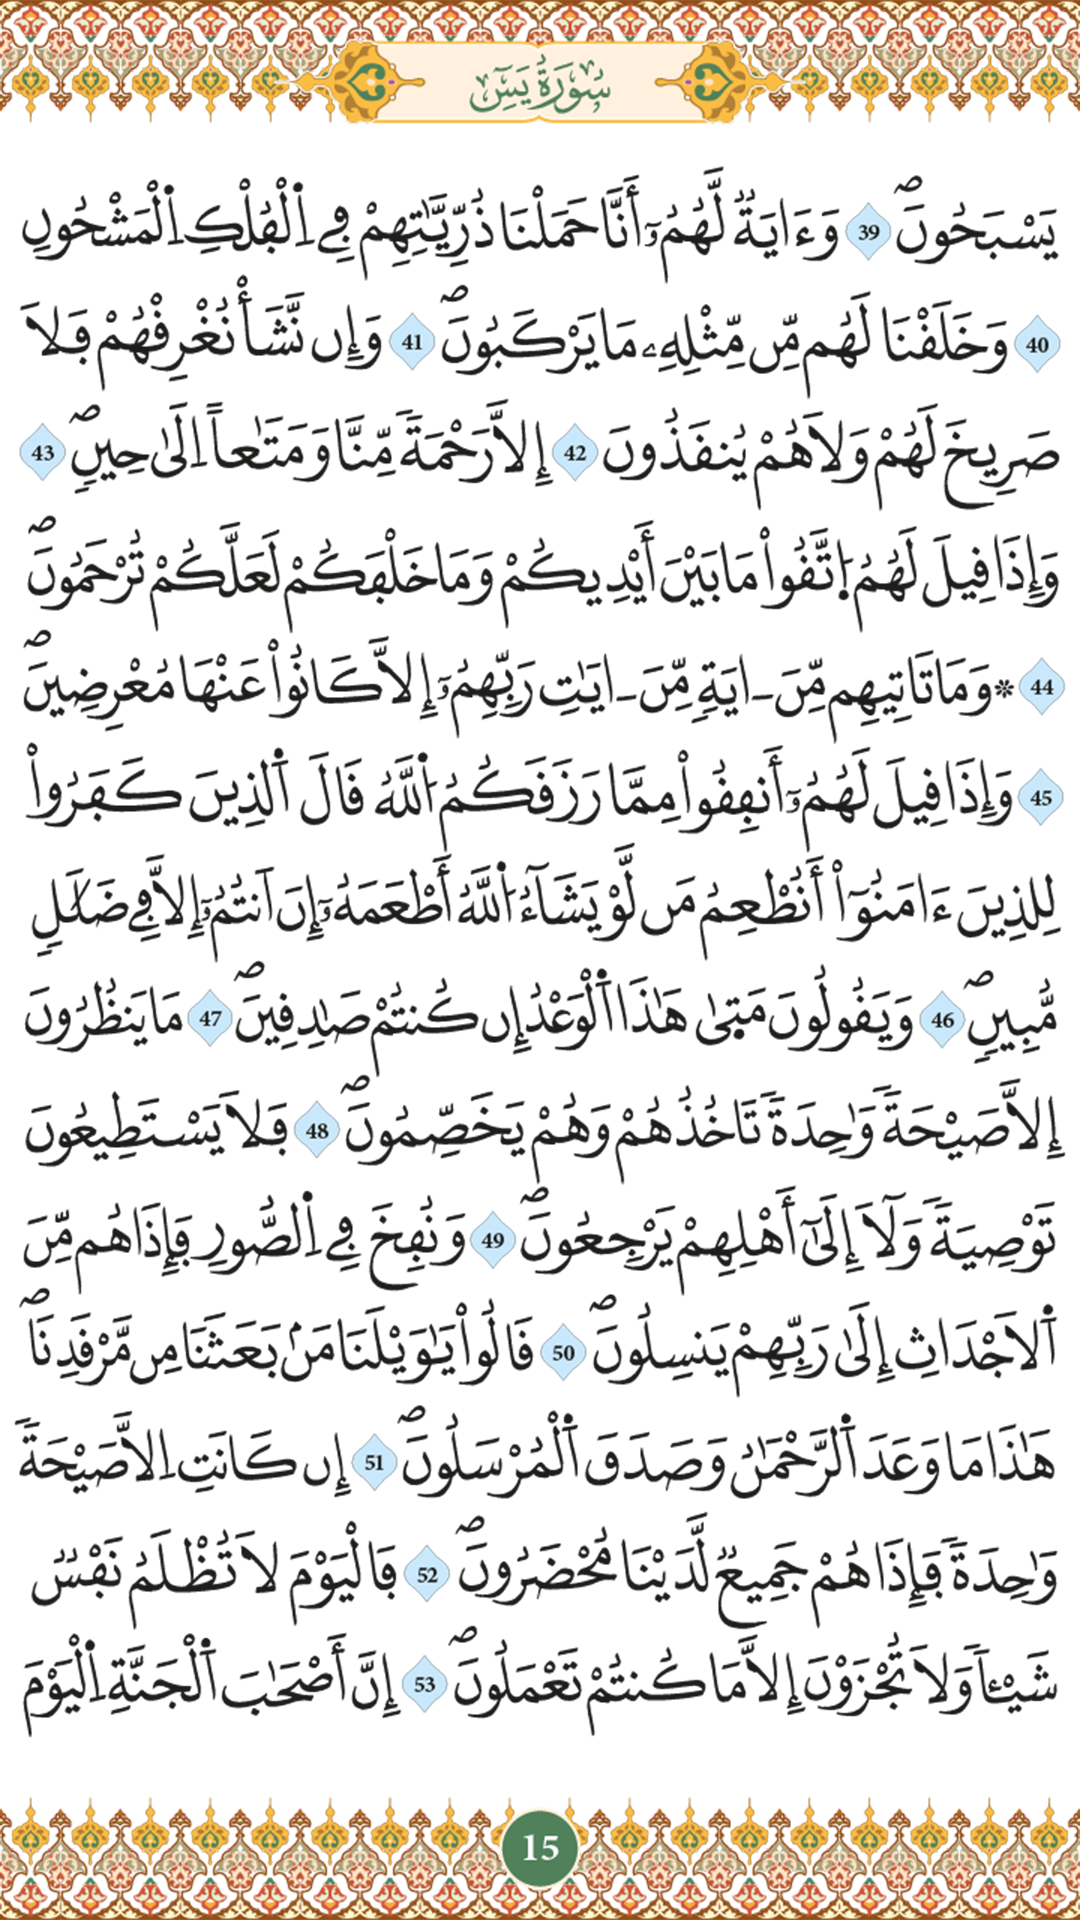 سُورَةُ يَسٓ
يَسْبَحُونَۖ 39 وَءَايَةٞ لَّهُمُۥٓ أَنَّا حَمَلْنَا ذُرِّيَّٰتِهِمْ فِے اِ۬لْفُلْكِ اِ۬لْمَشْحُونِ
40 وَخَلَقْنَا لَهُم مِّن مِّثْلِهِۦ مَا يَرْكَبُونَۖ 41 وَإِن نَّشَأْ نُغْرِقْهُمْ فَلَا
صَرِيخَ لَهُمْ وَلَا هُمْ يُنقَذُونَ 42 إِلَّا رَحْمَةٗ مِّنَّا وَمَتَٰعاً اِلَيٰ حِينٖۖ 43
وَإِذَا قِيلَ لَهُمُ اُ۪تَّقُواْ مَا بَيْنَ أَيْدِيكُمْ وَمَا خَلْفَكُمْ لَعَلَّكُمْ تُرْحَمُونَۖ
44 ۞ وَمَا تَاتِيهِم مِّنَ ايَةٖ مِّنَ ايَٰتِ رَبِّهِمُۥٓ إِلَّا كَانُواْ عَنْهَا مُعْرِضِينَۖ
45 وَإِذَا قِيلَ لَهُمُۥٓ أَنفِقُواْ مِمَّا رَزَقَكُمُ اُ۬للَّهُ قَالَ اَ۬لذِينَ كَفَرُواْ
لِلذِينَ ءَامَنُوٓاْ أَنُطْعِمُ مَن لَّوْ يَشَآءُ اُ۬للَّهُ أَطْعَمَهُۥٓ إِنَ اَنتُمُۥٓ إِلَّا فِے ضَلَٰلٖ
مُّبِينٖۖ 46 وَيَقُولُونَ مَتَيٰ هَٰذَا اَ۬لْوَعْدُ إِن كُنتُمْ صَٰدِقِينَۖ 47 مَا يَنظُرُونَ
إِلَّا صَيْحَةٗ وَٰحِدَةٗ تَاخُذُهُمْ وَهُمْ يَخَصِّمُونَۖ 48 فَلَا يَسْتَطِيعُونَ
تَوْصِيَةٗ وَلَآ إِلَيٰٓ أَهْلِهِمْ يَرْجِعُونَۖ 49 وَنُفِخَ فِے اِ۬لصُّورِ فَإِذَا هُم مِّنَ
اَ۬لَاجْدَاثِ إِلَيٰ رَبِّهِمْ يَنسِلُونَۖ 50 قَالُواْ يَٰوَيْلَنَا مَنۢ بَعَثَنَا مِن مَّرْقَدِنَاۖ
هَٰذَا مَا وَعَدَ اَ۬لرَّحْمَٰنُ وَصَدَقَ اَ۬لْمُرْسَلُونَۖ 51 إِن كَانَتِ اِلَّا صَيْحَةٗ
وَٰحِدَةٗ فَإِذَا هُمْ جَمِيعٞ لَّدَيْنَا مُحْضَرُونَۖ 52 فَالْيَوْمَ لَا تُظْلَمُ نَفْسٞ
شَيْـٔاٗ وَلَا تُجْزَوْنَ إِلَّا مَا كُنتُمْ تَعْمَلُونَۖ 53 إِنَّ أَصْحَٰبَ اَ۬لْجَنَّةِ اِ۬لْيَوْمَ
15